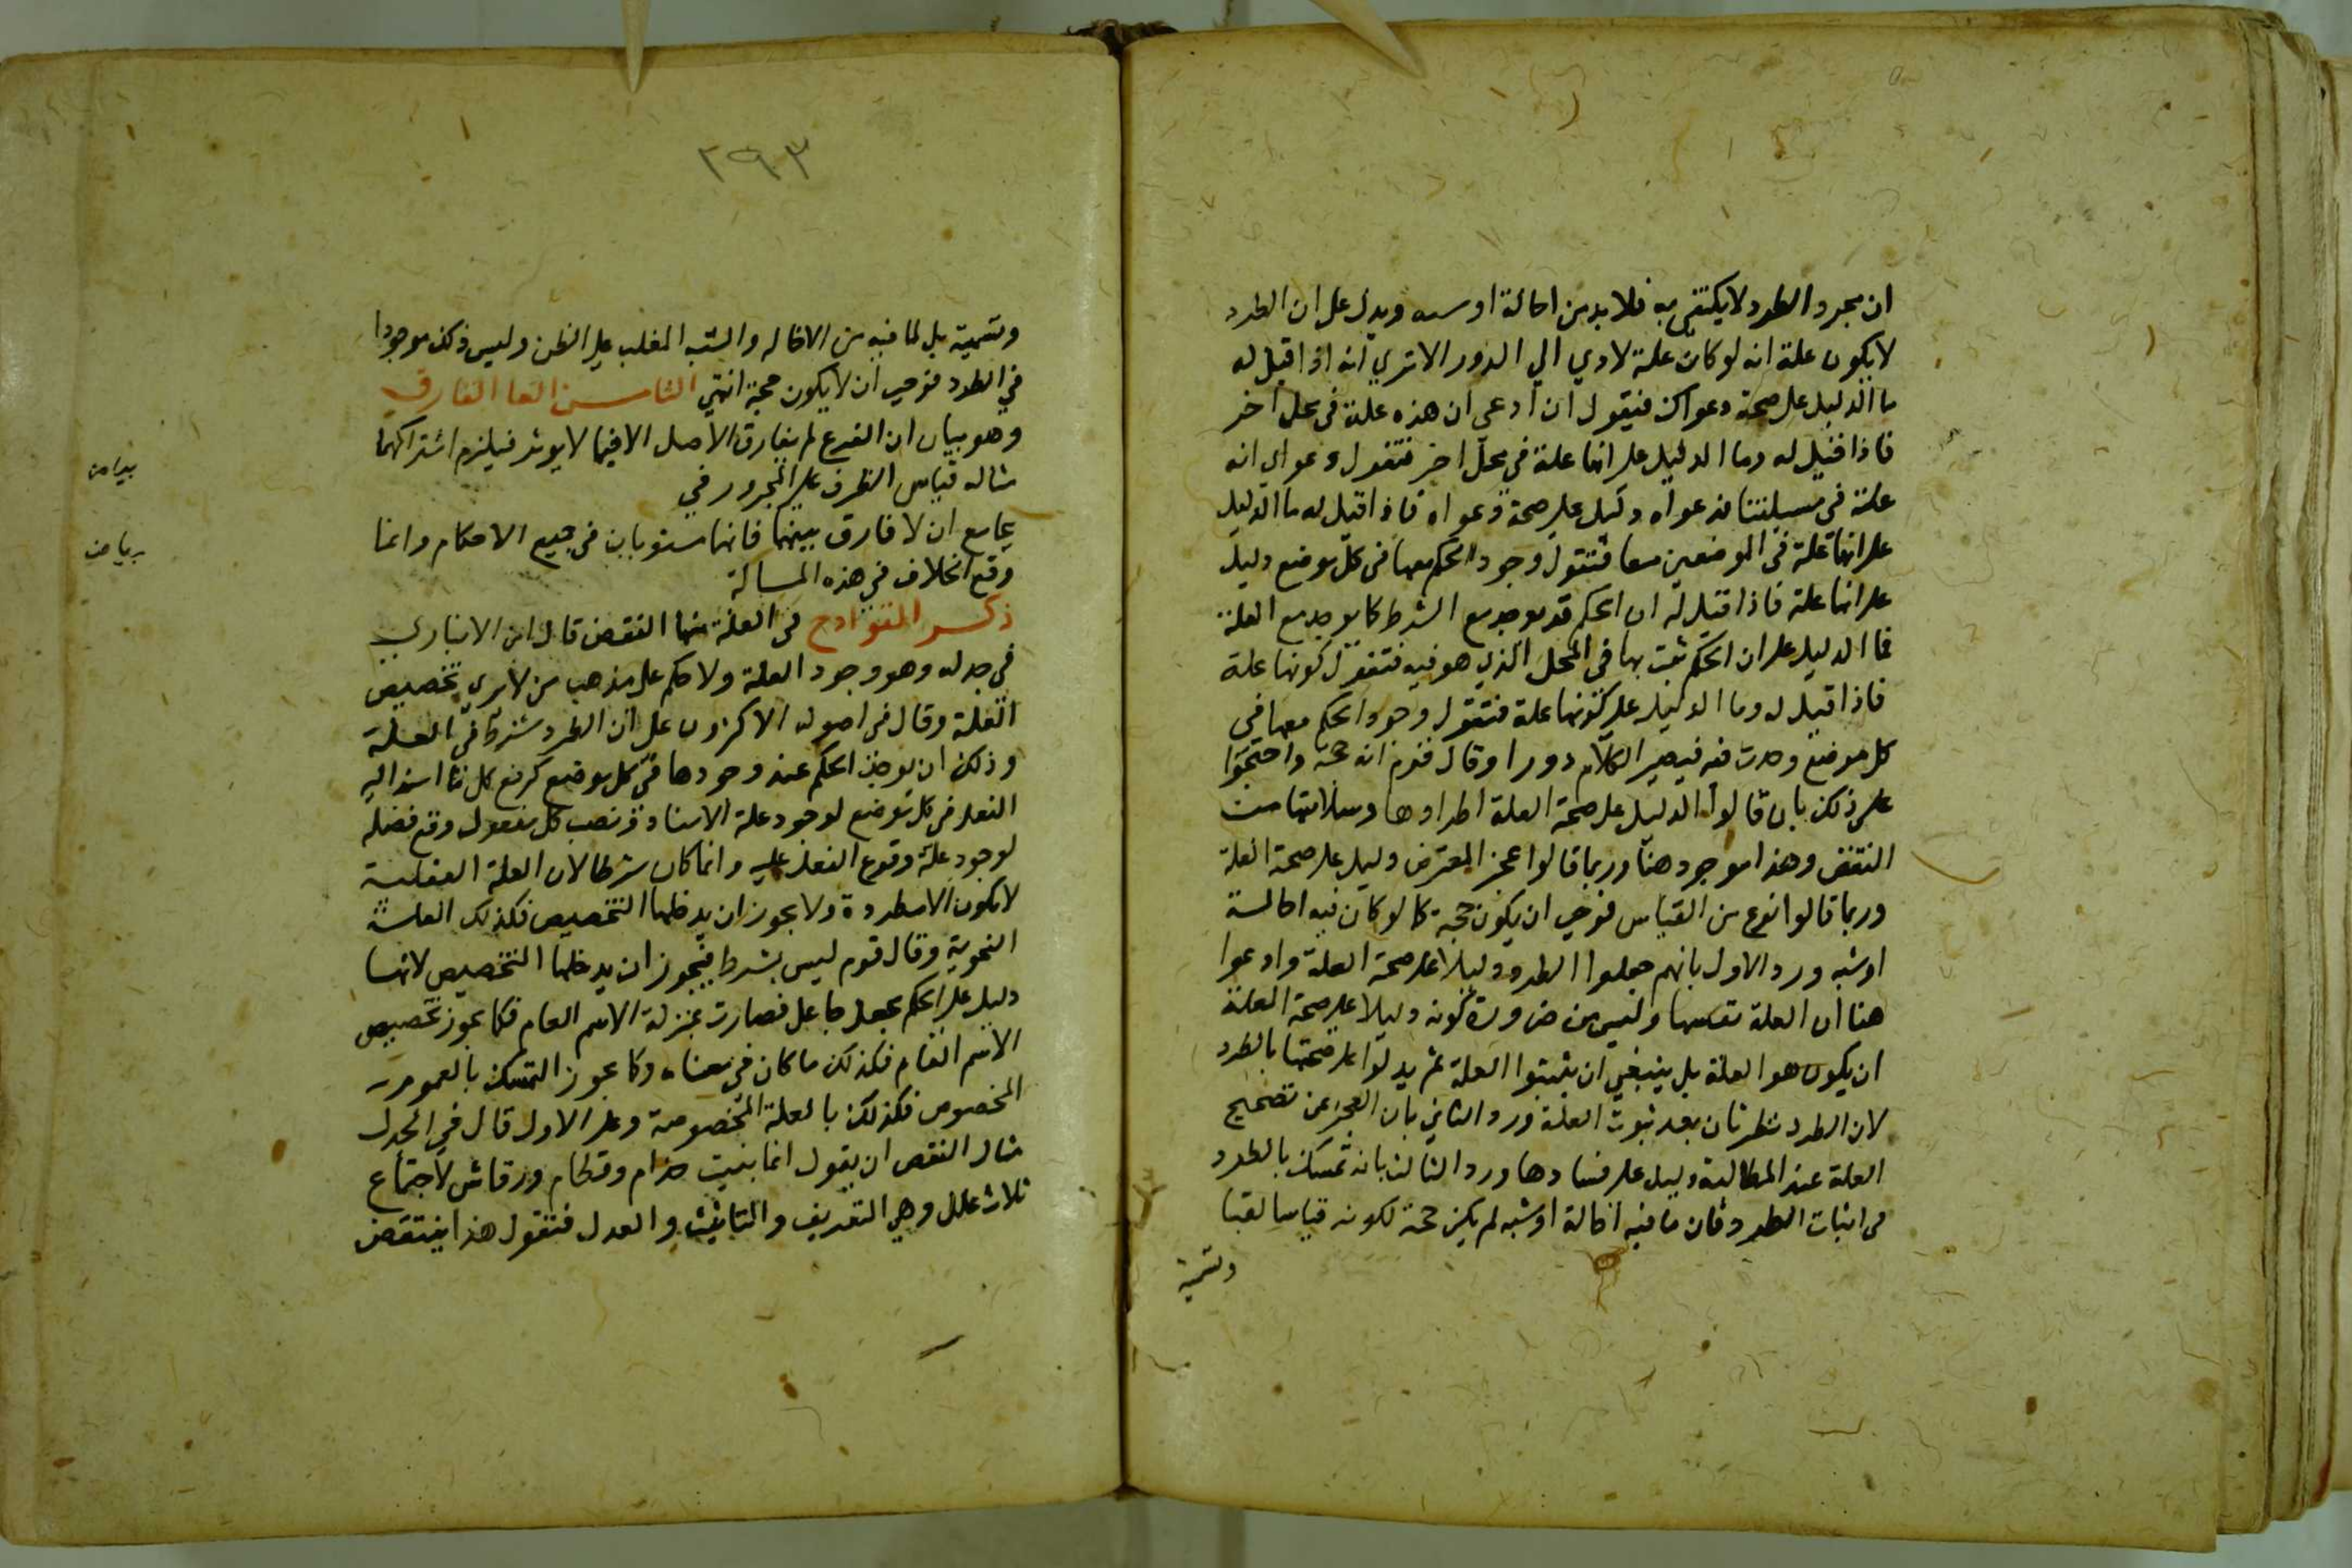 ان مجرد الطرد لا يكتفى به فلا بد من اخالة او شبه ويدل على ان الطرد
لا يكون علة انه لو كان علة لادي الي الدور الا تري انه اذا قيل له
ما الدليل على صحة دعواك فيقول ان ادعى ان هذه علة في محل اخر
فاذا قيل له وما الدليل على انها علة في محل اخر فتقول دعواي انه
علة في مسيلتنا فدعواه دليل على صحة دعواه فاذا قيل له ما الدليل
على انها علة في الموضعين معا فتقول وجود الحكم معها في كل موضع دليل
على انها علة فاذا قيل له ان الحكم قد يوجد مع الشرط كما يوجد مع العلة
فما الدليل على ان الحكم ثبت بها في المحل الذي هو فيه فتقول كونها علة
فاذا قيل له وما الدليل على كونها علة فتقول وجود الحكم معها في
كل موضع وجدت فيه فيصير الكلام دورا وقال قوم انه حجة واحتجوا
على ذلك بان قالوا الدليل على صحة العلة اطرادها وسلامتها من
النقض وهذا موجود هنا وربما قالوا عجز المعترض دليل على صحة العلة
وربما قالوا نوع من القياس فوجب ان يكون حجة كما لو كان فيه اخالة
او شبه ورد الاول بانهم جعلوا الطرد دليلا على صحة العلة وادعوا
هنا ان العلة نفسها وليس من ضرورة كونه دليلا على صحة العلة
ان يكون هو العلة بل ينبغي ان يثبتوا العلة ثم يدلوا على صحتها بالطرد
لان الطرد نظر ثان بعد ثبوت العلة ورد الثاني بان العجز عن تصحيح
العلة عند المطالبة دليل على فسادها ورد الثالث بانه تمسك بالطرد
في اثبات الطرد وفان ما فيه اخالة او شبه لم يكن حجة لكونه قياسا لقبا
وتسمية
٢٩٣
وتسمية بل لما فيه من الاخاله والشبه المغلب على الظن وليس ذلك موجودا
في الطرد فوجب ان لا يكون حجة انتهي الثامن الغا الفارق
وهو بيان ان الفرع لم يفارق الاصل الا فيما لا يوثر فيلزم اشتراكهما
مثاله قياس الظرف على المجرور في
بياض
بجامع ان لا فارق بينهما فانهما مستويان في جميع الاحكام وانما
وقع الخلاف في هذه المسالة
بياض
ذكر القوادح في العلة منها النقض قال ابن الانباري
في جدله وهو وجود العلة ولا حكم على مذهب من لا يري تخصيص
العلة وقال في اصوله الاكثرون على ان الطرد شرط في العلة
وذلك ان يوجد الحكم عند وجودها في كل موضع كرفع كل ما اسند اليه
الفعل في كل موضع لوجود علة الاسناد ونصب كل مفعول وقع فضلة
لوجود علة وقوع الفعل عليه وانما كان شرطا لان العلة العقلية
لا تكون الا مطردة ولا يجوز ان يدخلها التخصيص فكذلك العلة
النحوية وقال قوم ليس بشرط فيجوز ان يدخلها التخصيص لانها
دليل على الحكم بجعل جاعل فصارت بمنزلة الاسم العام فكما يجوز تخصيص
الاسم العام فكذلك ما كان في معناه وكما يجوز التمسك بالعموم
المخصوص فكذلك بالعلة المخصوصة وعلى الاول قال في الجدل
مثال النقض ان يقول انما بنيت حذام وقطام ورقاش لاجتماع
ثلاث علل وهي التعريف والتانيث والعدل فتقول هذا ينتقض